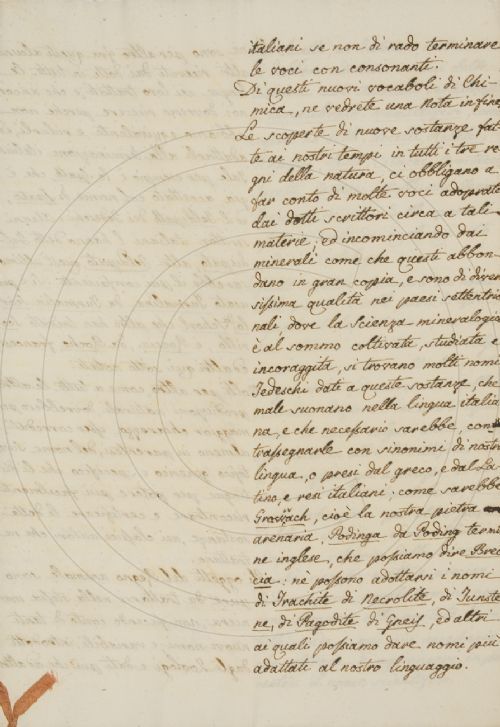 italiani se non di rado terminare
le voci con consonanti.
Di questi nuovi vocaboli di Chi-
mica, ne vedrete una Nota in fine
Le scoperte di nuove sostanze fat-
te ai nostri tempi in tutti i tre re-
gni della natura, ci obbligano a
far conto di molte voci adoprate
dai dotti scrittori circa a tali
materie; ed incominciando dai
minerali come che questi abbon-
dano in gran copia, e sono di diver-
sissima qualità nei paesi settentrio-
nali, dove la scienza mineralogia
è al sommo coltivata, studiata e
incoraggita, si trovano molti nomi
Tedeschi dati a queste sostanze, che
male suonano nella lingua italia-
na, e che necessario sarebbe, con-
trassegnarle con sinonimi di nostra
lingua, o presi dal greco, e dal La-
tino, e resi italiani; come sarebbe
cioè la nostra pietra
arenaria, Podinga da Poding termi-
ne inglese, che possiamo dire Brec-
cia: ne possono adottarsi i nomi
di Trachite di Necrolite, di Tunste-
ne, di Pagodite di Gneis, ed altri
ai quali possiamo dare nomi più
adattati al nostro linguaggio.